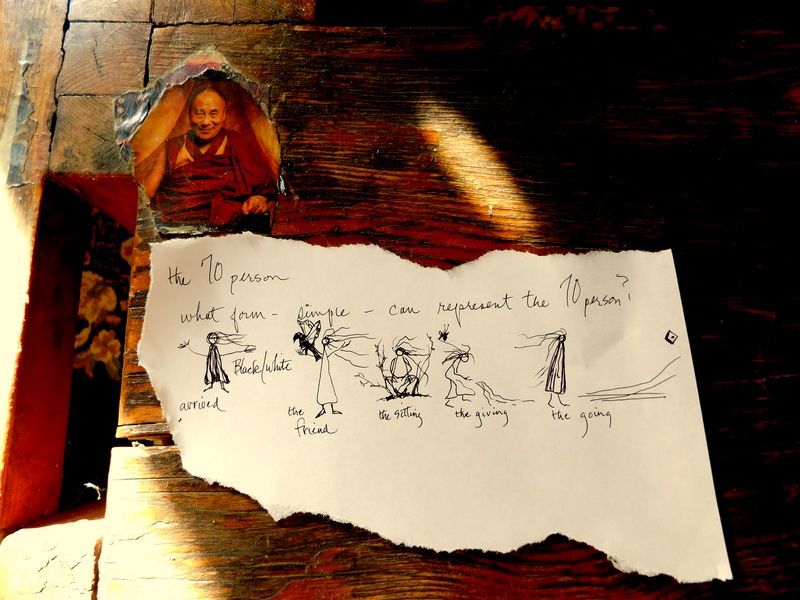 the 70 person
what form - simple - can represent the 70 person?
Black/White
arrived
the friend
the sitting
the giving
the going